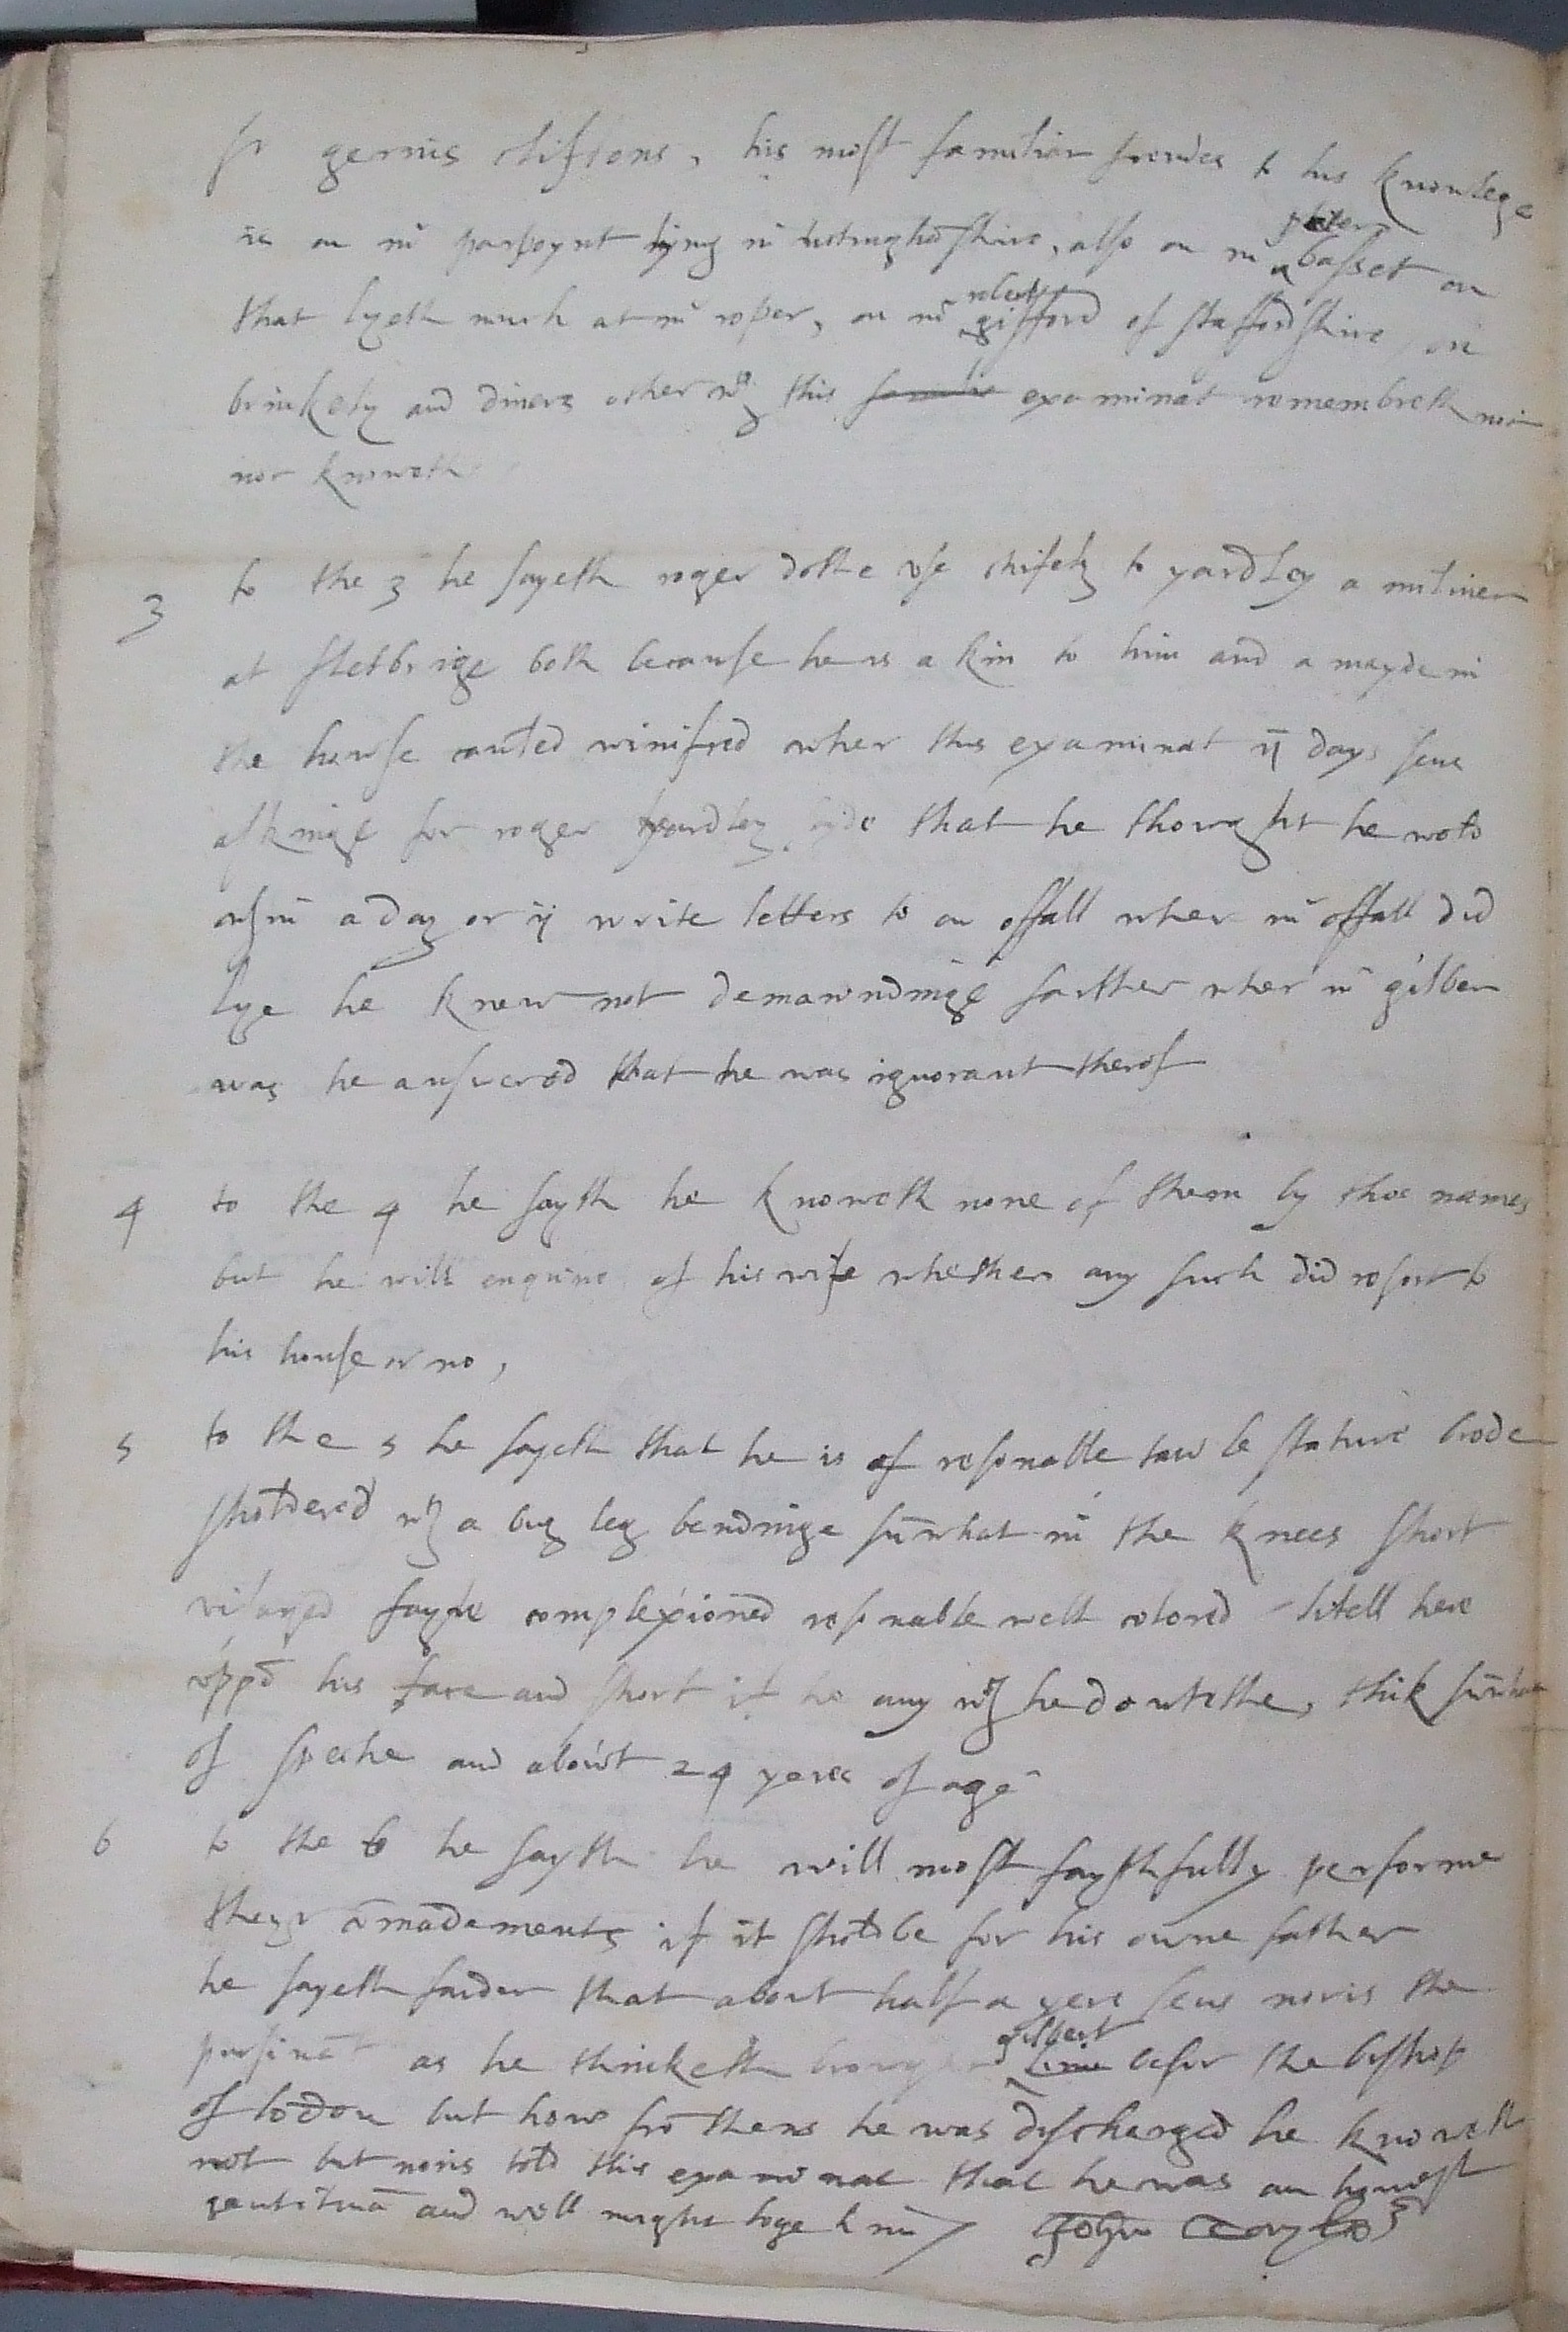 sr gervis cliftons, his most familiar frendes to his knowlege
is on mr parpoynt lying in notinghāshire, also on mr peter basset on
that lyeth much at mr roper, on mr robert gifford of stafford shire, on
brinkely and divers other wch this examinat remembreth not
nor knoweth
3 to the 3 he sayeth roger dothe use chifely to yardley a miliner
at fletbrige both because he is a kin to him and a mayde in
the howse called winifred wher this examinat ij days sens
askinge for roger yardley that he thowght he wold
wthin a day or ij write letters to on offall wher mr offall did
lye he knew not demawndinge farther wher mr gilber
was he answered that he was ignorant therof
4 to the 4 he sayth he knoweth none of them by thos names
but he will enquire of his wife whether any such did resort to
his house or no,
5 to the 5 he sayeth that he is of resonable tawle stature brode
sholdered wth a big leg bendinge sūwhat in the knees short
visaged fayre complexioned resonable well colored litell here
uppō his face and short if he any wch he doutethe, thik sūwhat
of speche and about 24 yeres of age
6 to the 6 he sayth he will most faythfully performe
theyr cōmādements if it sholdbe for his owne father
he sayeth farder that about half a yere sens noris the
pursivāt as he thinketh gilbert befor the bisshop
of lōdon but how frō thens he was discharged he knoweth
not but noris told this examinat that he was an honest
gentilmā and will might loge him John Tayler